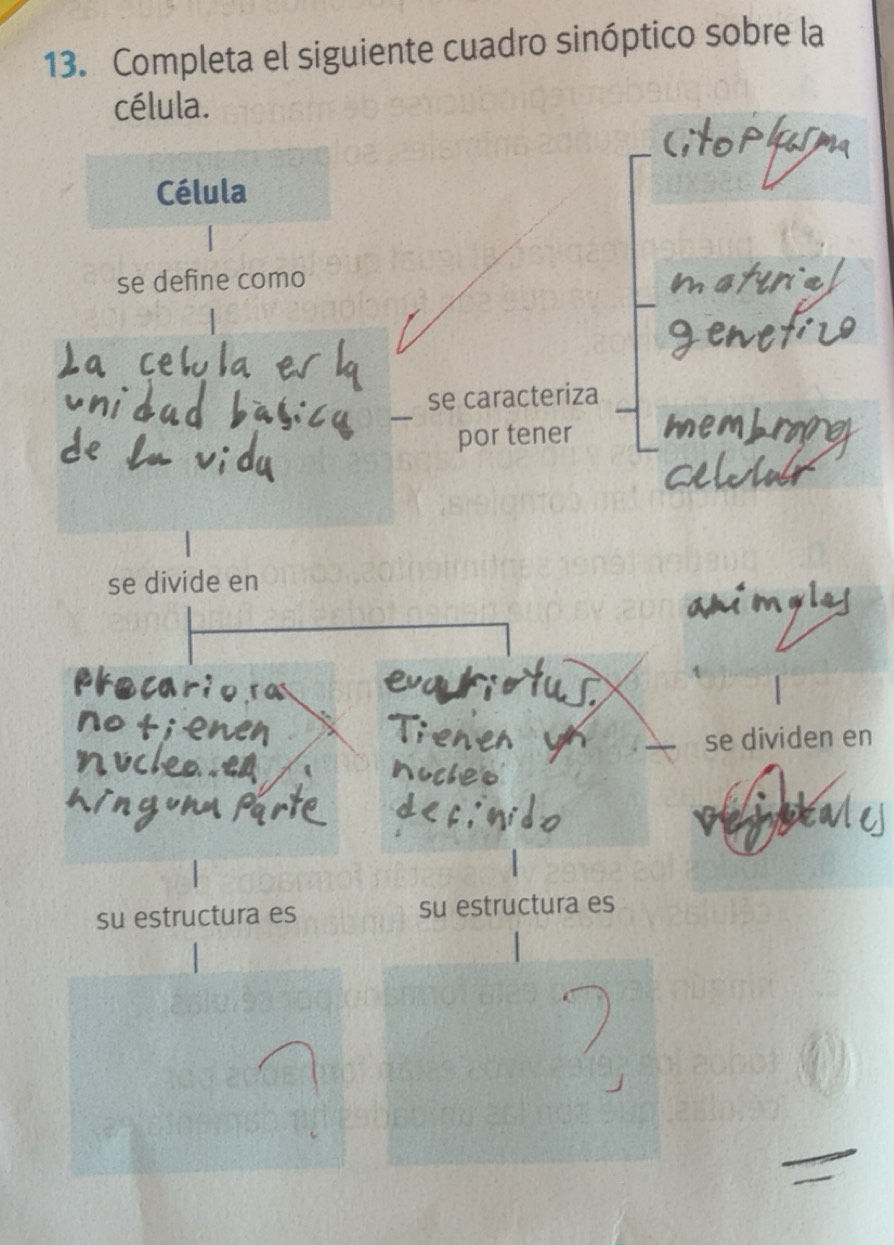 13. Completa el siguiente cuadro sinóptico sobre la
célula.
Célula
se define como
La celula es la
unidad basica
de la vida
se caracteriza
por tener
citoplasma
material
genetico
membrana
celular
se divide en
Procariotas
no tienen
nucleo en
ninguna parte
eucariotas.
Tienen un
nucleo
definido
animales
se dividen en
vejetales
su estructura es
su estructura es
?
?